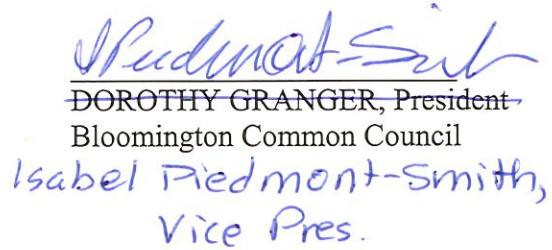 I Piedmont-Smith
DOROTHY GRANGER, President
Bloomington Common Council
Isabel Piedmont-Smith,
Vice Pres.